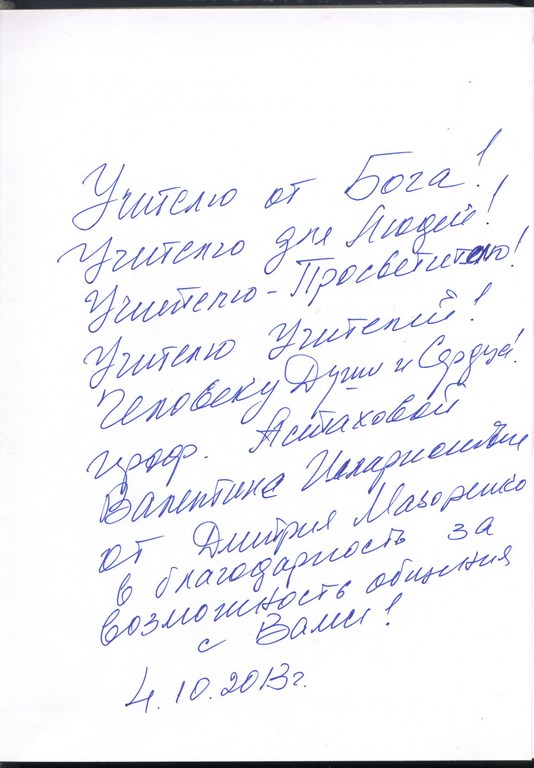 Учителю от Бога!
Учителю для Людей!
Учителю-Просветителю!
Учителю Учителей!
Человеку Души и Сердца!
проф. Астаховой
Валентине Илларионовне
от Дмитрия Мазоренко
в благодарность за
возможность общения
с Вами!
4.10.2013г.